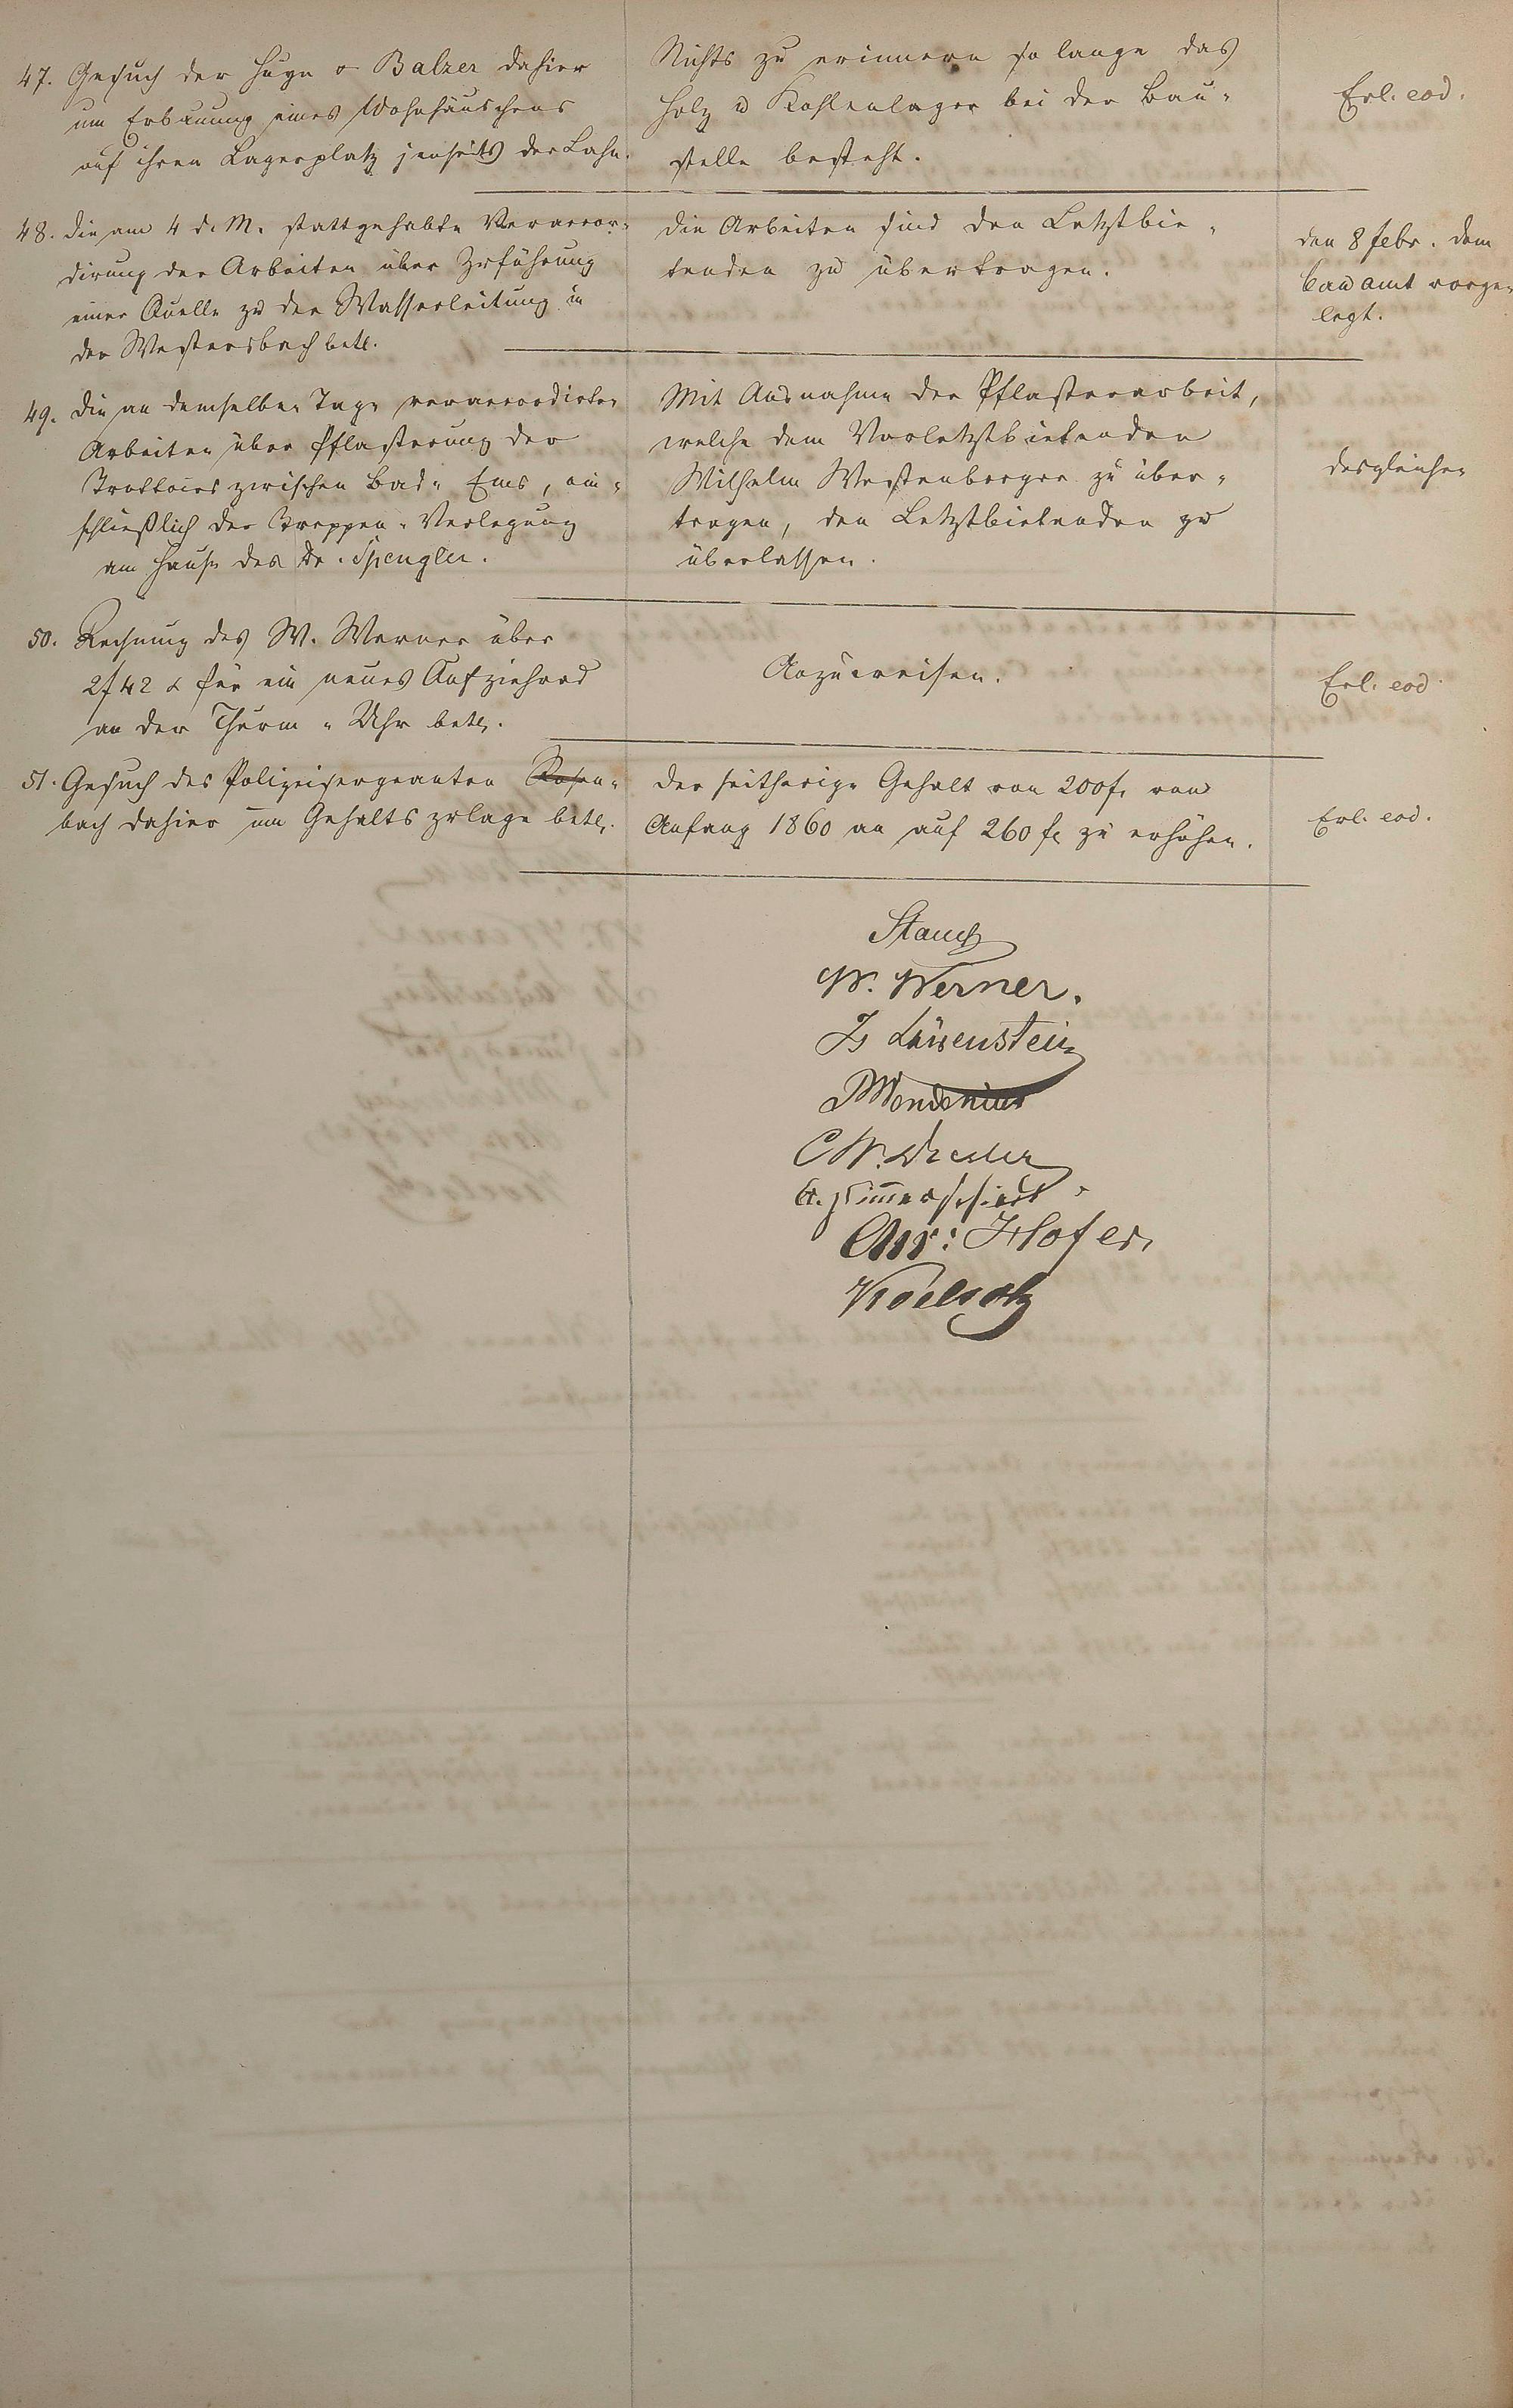 47. Gesuch der Hugo & Balzer dahier
um Erbauung eines Wohnhäuschens
auf ihren Lagerplatz jenseits der Lahn.
Nichts zu erinnern so lange das
Holz u Kohlenlager bei der Bau-
stelle besteht.
Erl. eod.
48. Die am 4 d. M. stattgehabte Veraccor-
dirung der Arbeiten über Zuführung
einer Quelle zu der Wasserleitung in
der Westersbach betr.
Die Arbeiten sind den Letztbie-
tenden zu übertragen.
Den 8 Febr. dem
Bauamt vorge-
legt.
49. Die an demselben Tage veraccordirten
Arbeiten über Pflasterung der
Trottoirs zwischen Bad-Ems, ein-
schließlich der Treppen-Verlegung
am Hause des Dr. Spengler.
Mit Ausnahme der Pflasterarbeit,
welche dem Vorletztbietenden
Wilhelm Westenberger zu über-
tragen, den Letztbietenden zu
überlassen.
desgleichen
50. Rechnung des W. Werner über
2 f 42 x für ein neues Aufziehrad
an der Thurm-Uhr betr.
Anzuweisen.
Erl. eod.
51. Gesuch des Polizeisergeanten Rosen-
bach dahier um Gehaltszulage betr.
Der seitherige Gehalt von 200 f. von
Anfang 1860 an auf 260 f. zu erhöhen.
Erl. eod.
Stauch
W. Werner.
Is Löwenstein
C W.
Chr: Hofer